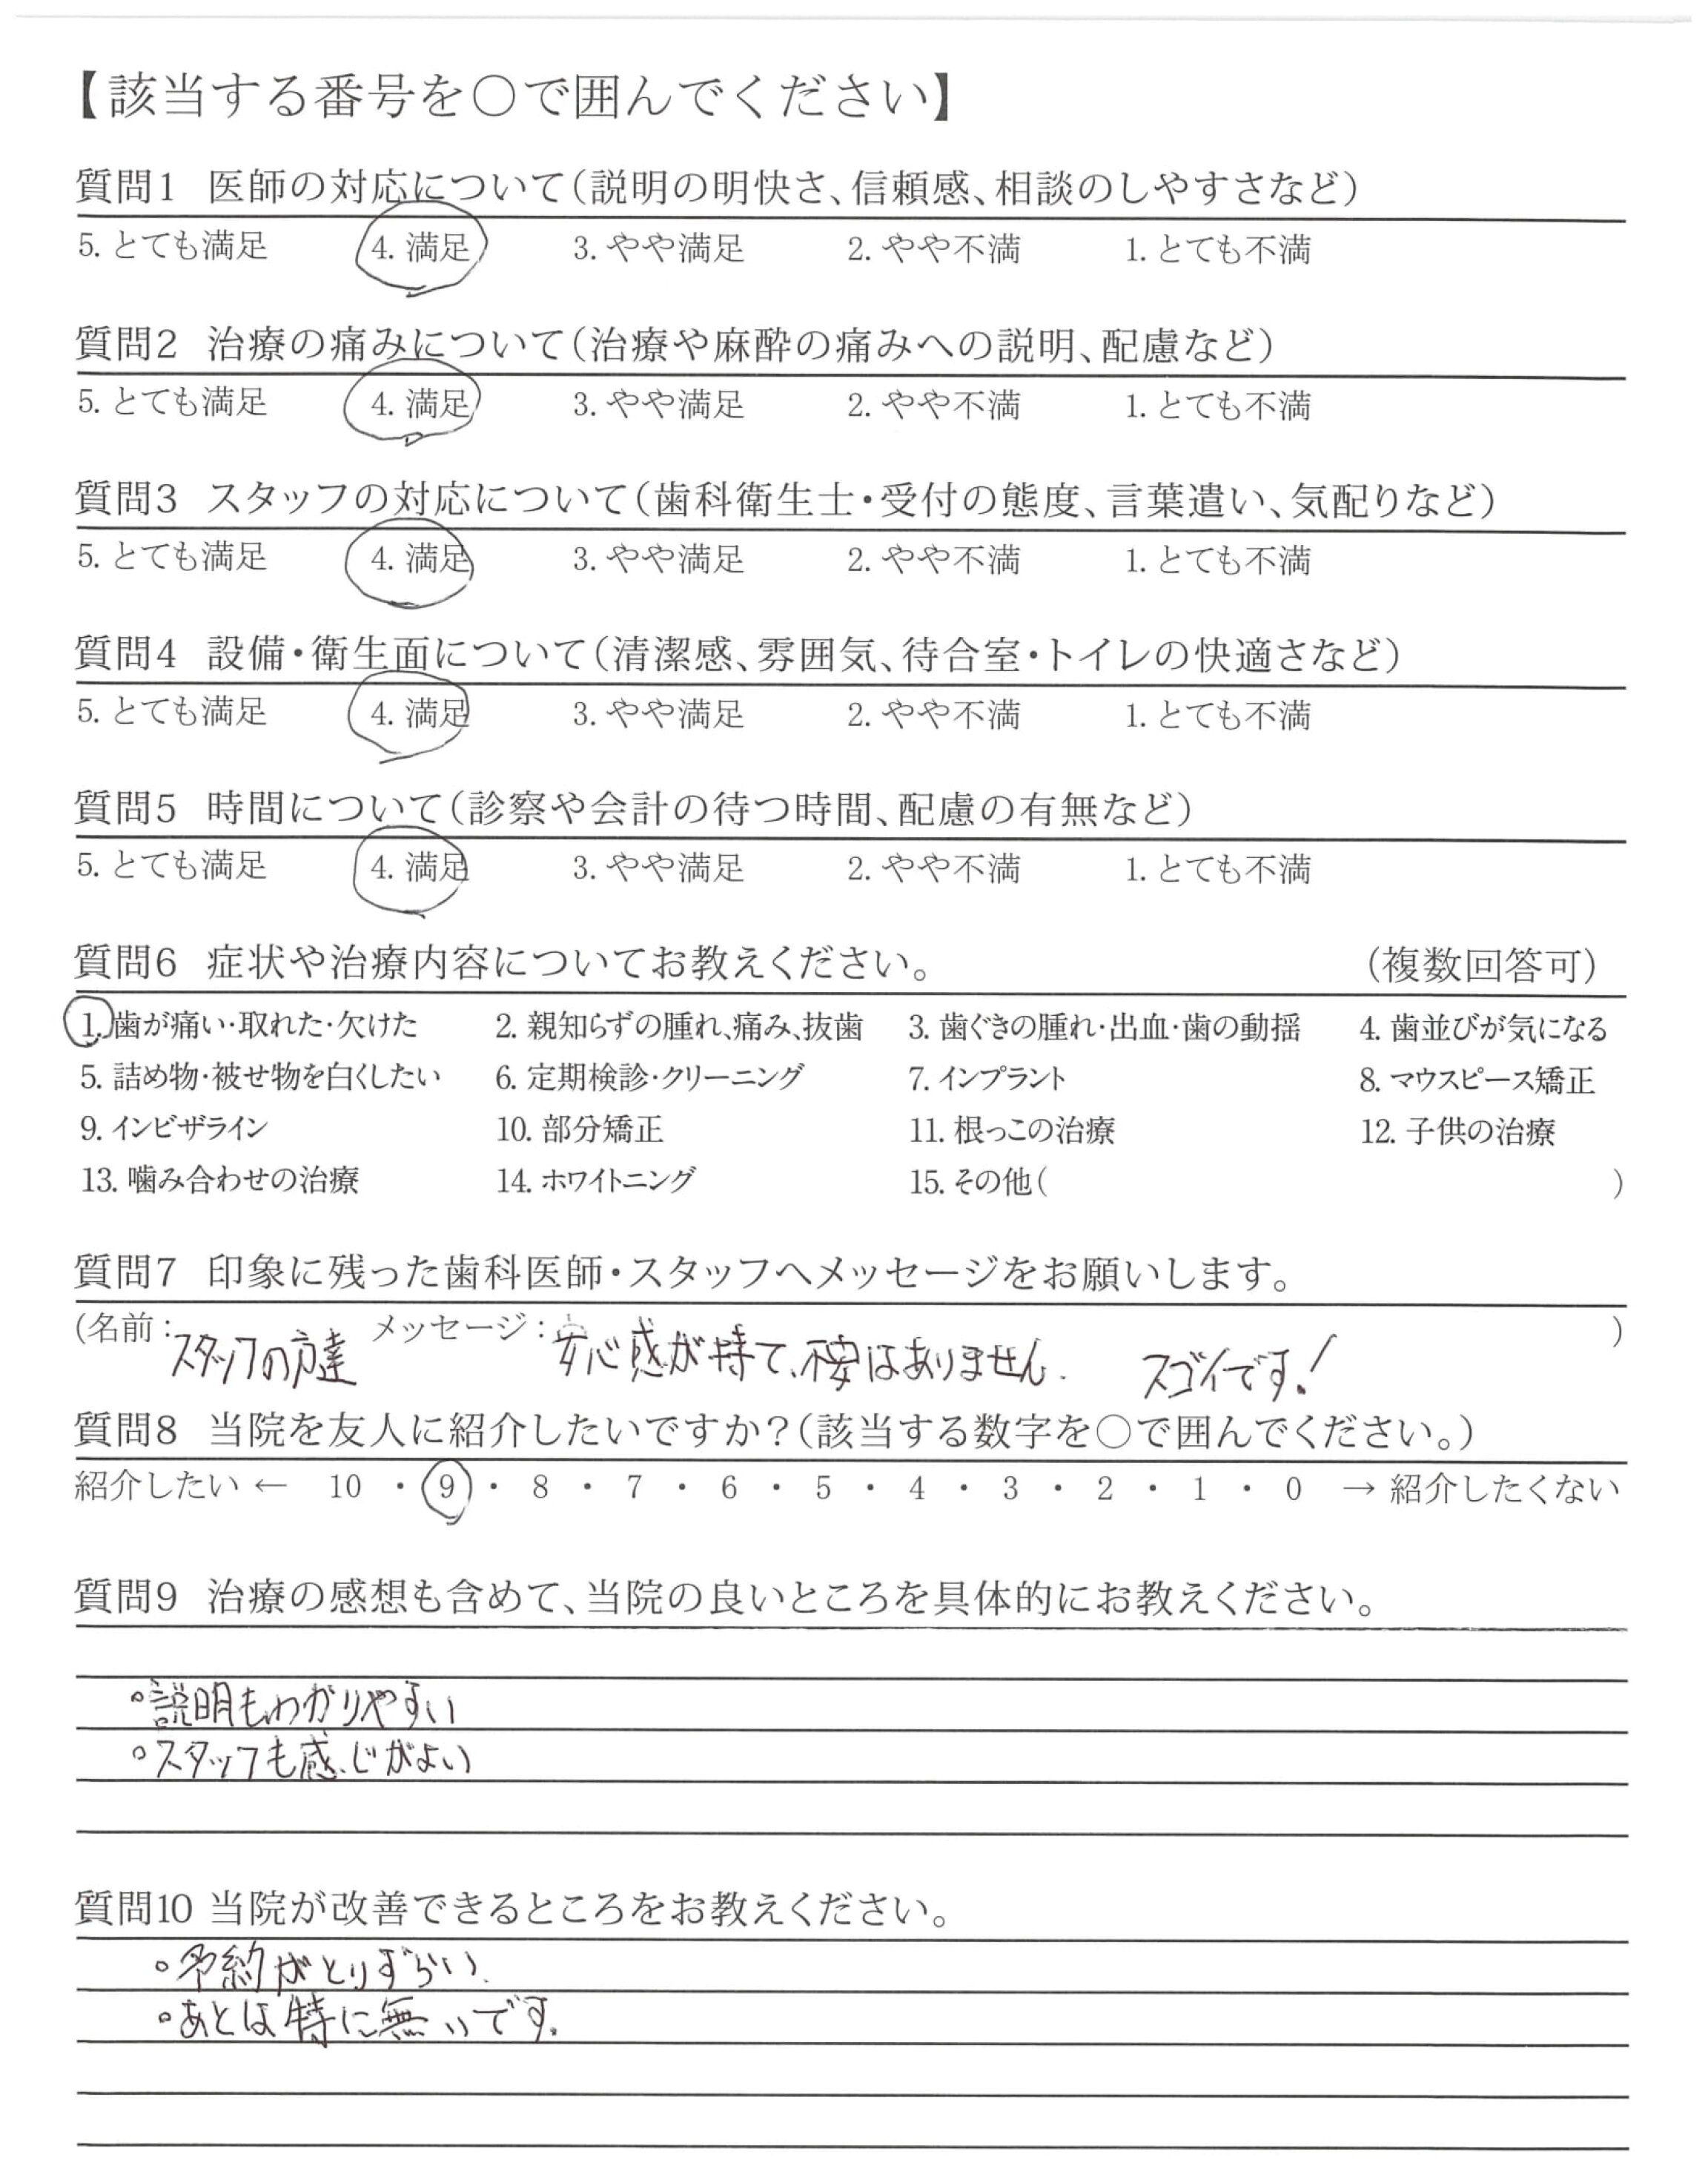 【該当する番号を○で囲んでください】
質問1 医師の対応について（説明の明快さ、信頼感、相談のしやすさなど）
5. とても満足 4. 満足 3. やや満足 2. やや不満 1. とても不満
質問2 治療の痛みについて（治療や麻酔の痛みへの説明、配慮など）
5. とても満足 4. 満足 3. やや満足 2. やや不満 1. とても不満
質問3 スタッフの対応について（歯科衛生士・受付の態度、言葉遣い、気配りなど）
5. とても満足 4. 満足 3. やや満足 2. やや不満 1. とても不満
質問4 設備・衛生面について（清潔感、雰囲気、待合室・トイレの快適さなど）
5. とても満足 4. 満足 3. やや満足 2. やや不満 1. とても不満
質問5 時間について（診察や会計の待つ時間、配慮の有無など）
5. とても満足 4. 満足 3. やや満足 2. やや不満 1. とても不満
質問6 症状や治療内容についてお教えください。 （複数回答可）
1. 歯が痛い・取れた・欠けた 2. 親知らずの腫れ、痛み、抜歯 3. 歯ぐきの腫れ・出血・歯の動揺 4. 歯並びが気になる
5. 詰め物・被せ物を白くしたい 6. 定期検診・クリーニング 7. インプラント 8. マウスピース矯正
9. インビザライン 10. 部分矯正 11. 根っこの治療 12. 子供の治療
13. 噛み合わせの治療 14. ホワイトニング 15. その他（ ）
質問7 印象に残った歯科医師・スタッフへメッセージをお願いします。
（名前：スタッフの方達 メッセージ：安心感が持て、不安はありません. スゴイです！ ）
質問8 当院を友人に紹介したいですか？（該当する数字を○で囲んでください。）
紹介したい ← 10 ・ 9 ・ 8 ・ 7 ・ 6 ・ 5 ・ 4 ・ 3 ・ 2 ・ 1 ・ 0 → 紹介したくない
質問9 治療の感想も含めて、当院の良いところを具体的にお教えください。
○説明もわかりやすい
○スタッフも感じがよい
質問10 当院が改善できるところをお教えください。
○予約がとりずらい.
○あとは特に無いです.